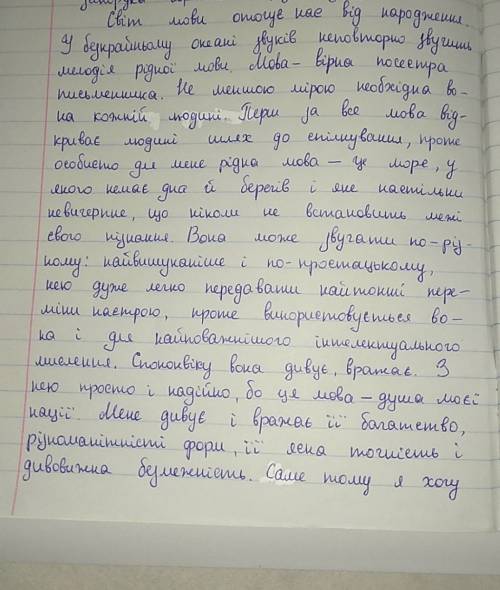 Світ мови оточує нас від народження.
У безкрайньому океані звуків неповторно звучить
мелодія рідної мови. Мова – вірна посестра
письменника. Не меншою мірою необхідна во-
на кожній людині. Перш за все мова від-
криває людині шлях до спілкування, проте
особисто для мене рідна мова – це море, у
якого немає дна й берегів і яке настільки
невичерпне, що ніколи не встановить межі
свого пізнання. Вона може звучати по-різ-
ному: найвишуканіше і по-простацькому,
нею дуже легко передавати найтонші пере-
міни настрою, проте використовується во-
на і для найповажнішого інтелектуального
мислення. Споконвіку вона дивує, вражає. З
нею просто і надійно, бо ця мова – душа моєї
нації. Мене дивує і вражає її багатство,
різноманітність форм, її ясна точність і
дивовижна безмежність. Саме тому я хочу